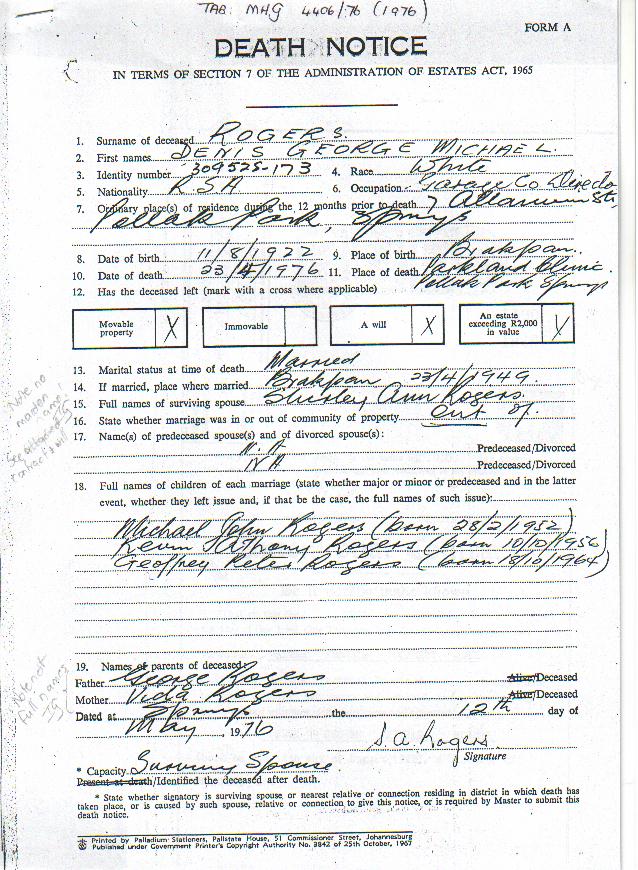 TAB: MHG 4406/76 (1976)
FORM A
DEATH NOTICE
IN TERMS OF SECTION 7 OF THE ADMINISTRATION OF ESTATES ACT, 1965
1. Surname of deceased ROGERS.
2. First names DENIS GEORGE MICHAEL.
3. Identity number 309525-173 4. Race White
5. Nationality R.S.A 6. Occupation Garage Co Director
7. Ordinary place(s) of residence during the 12 months prior to death 7 St,
Pollak Park, Springs
8. Date of birth 11/8/1922 9. Place of birth Brakpan.
10. Date of death 23/4/1976 11. Place of death Parkland Clinic.
Pollak Park Springs
12. Has the deceased left (mark with a cross where applicable)
Movable property X Immovable A will X An estate exceeding R2,000 in value X
13. Marital status at time of death Married
14. If married, place where married Brakpan 23/4/1949.
15. Full names of surviving spouse Shirley Ann Rogers.
16. State whether marriage was in or out of community of property out of.
17. Name(s) of predeceased spouse(s) and of divorced spouse(s):
N.A Predeceased/Divorced
N A Predeceased/Divorced
18. Full names of children of each marriage (state whether major or minor or predeceased and in the latter
event, whether they left issue and, if that be the case, the full names of such issue):
Michael John Rogers (born 28/2/1952)
Kevin Anthony Rogers (born 10/10/1956)
Geoffrey Peter Rogers (born 18/10/1964)
19. Names of parents of deceased:
Father George Rogers Alive/Deceased
Mother Vida Rogers Alive/Deceased
Dated at Springs the 12th day of
May, 1976
S.A. Rogers.
Signature
* Capacity Surviving Spouse.
Present at death/Identified the deceased after death.
* State whether signatory is surviving spouse or nearest relative or connection residing in district in which death has
taken place, or is caused by such spouse, relative or connection to give this notice, or is required by Master to submit this
death notice.
Printed by Palladium Stationers, Pallstate House, 51 Commissioner Street, Johannesburg
Published under Government Printer's Copyright Authority No. 3842 of 25th October, 1967
Note not
full names